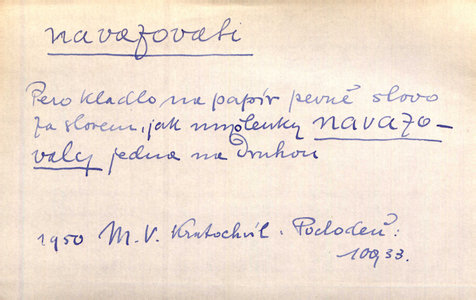 navazovati
Pero kladlo na papír pevně slovo
za slovem, jak myšlenky navazo-
valy jedna na druhou
1950 M. V. Kratochvíl.
100,33.